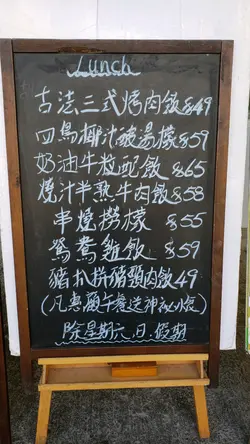 Lunch
古法三式烤肉飯 $49
四鳥椰汁酸湯檬 $59
奶油牛粒配飯 $65
燒汁半熟牛肉飯 $58
串燒撈檬 $55
鴛鴦雞飯 $59
豬扒拼豬頸肉飯 49
(凡惠顧午餐送神秘小食)
除星期六,日,假期